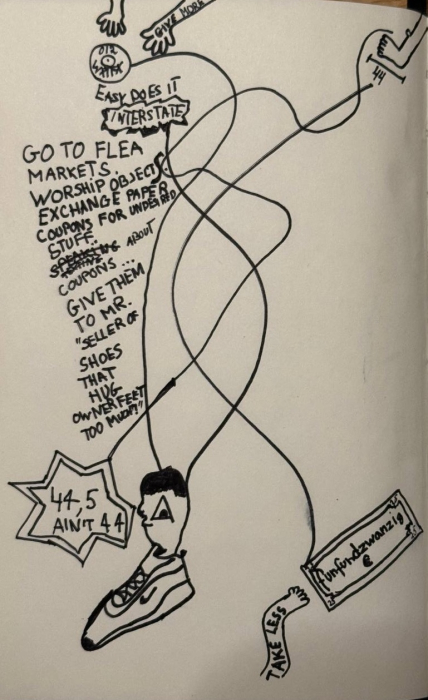 GIVE MORE
EASY DOES IT
INTERSTATE
44
GO TO FLEA
MARKETS.
WORSHIP OBJECTS
EXCHANGE PAPER
COUPONS FOR UNDEADED
STUFF.
SPEAKING ABOUT
COUPONS...
GIVE THEM
TO MR.
"SELLER OF
SHOES
THAT
HUG
OWNER FEET
TOO MUCH?!"
44,5
AIN'T 44
funfundzwanzig
€
TAKE LESS